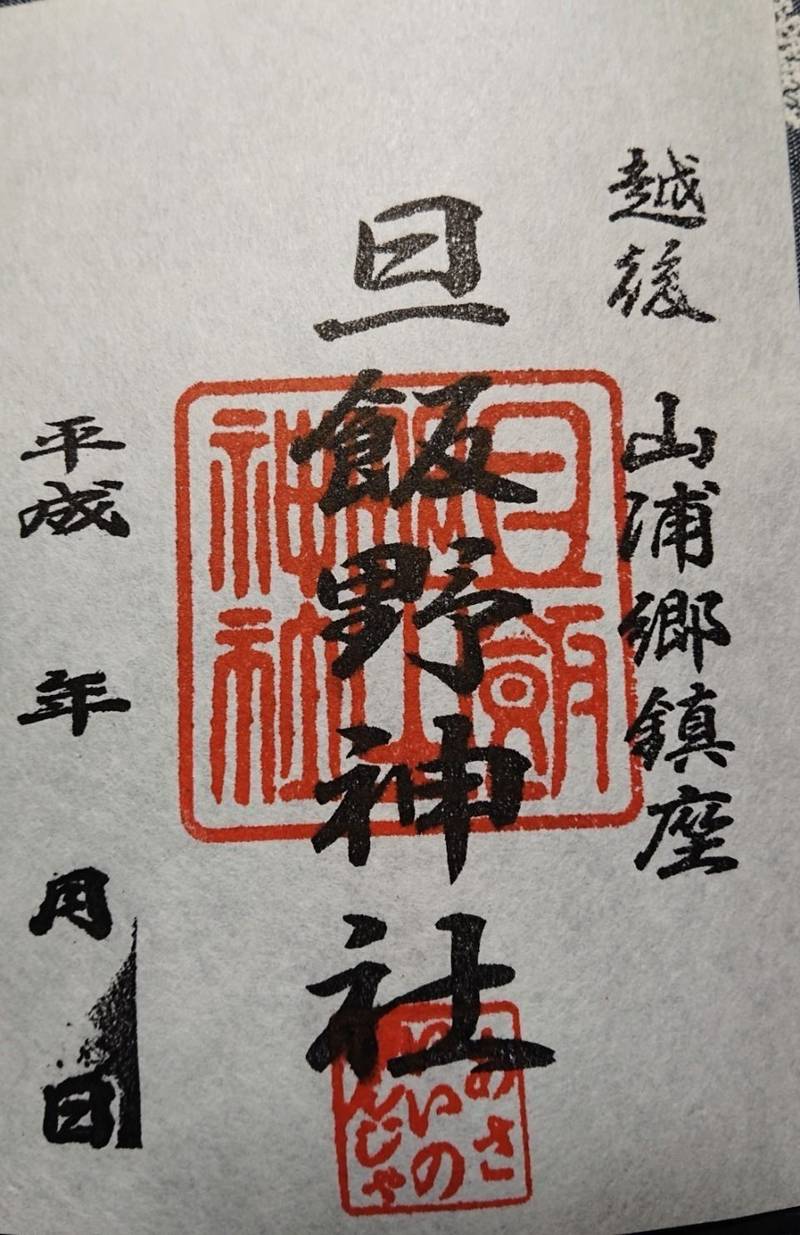 越後 山浦郷鎮座
旦飯野神社
平成 年 月 日
旦飯野神社
あさひいのじんじゃ